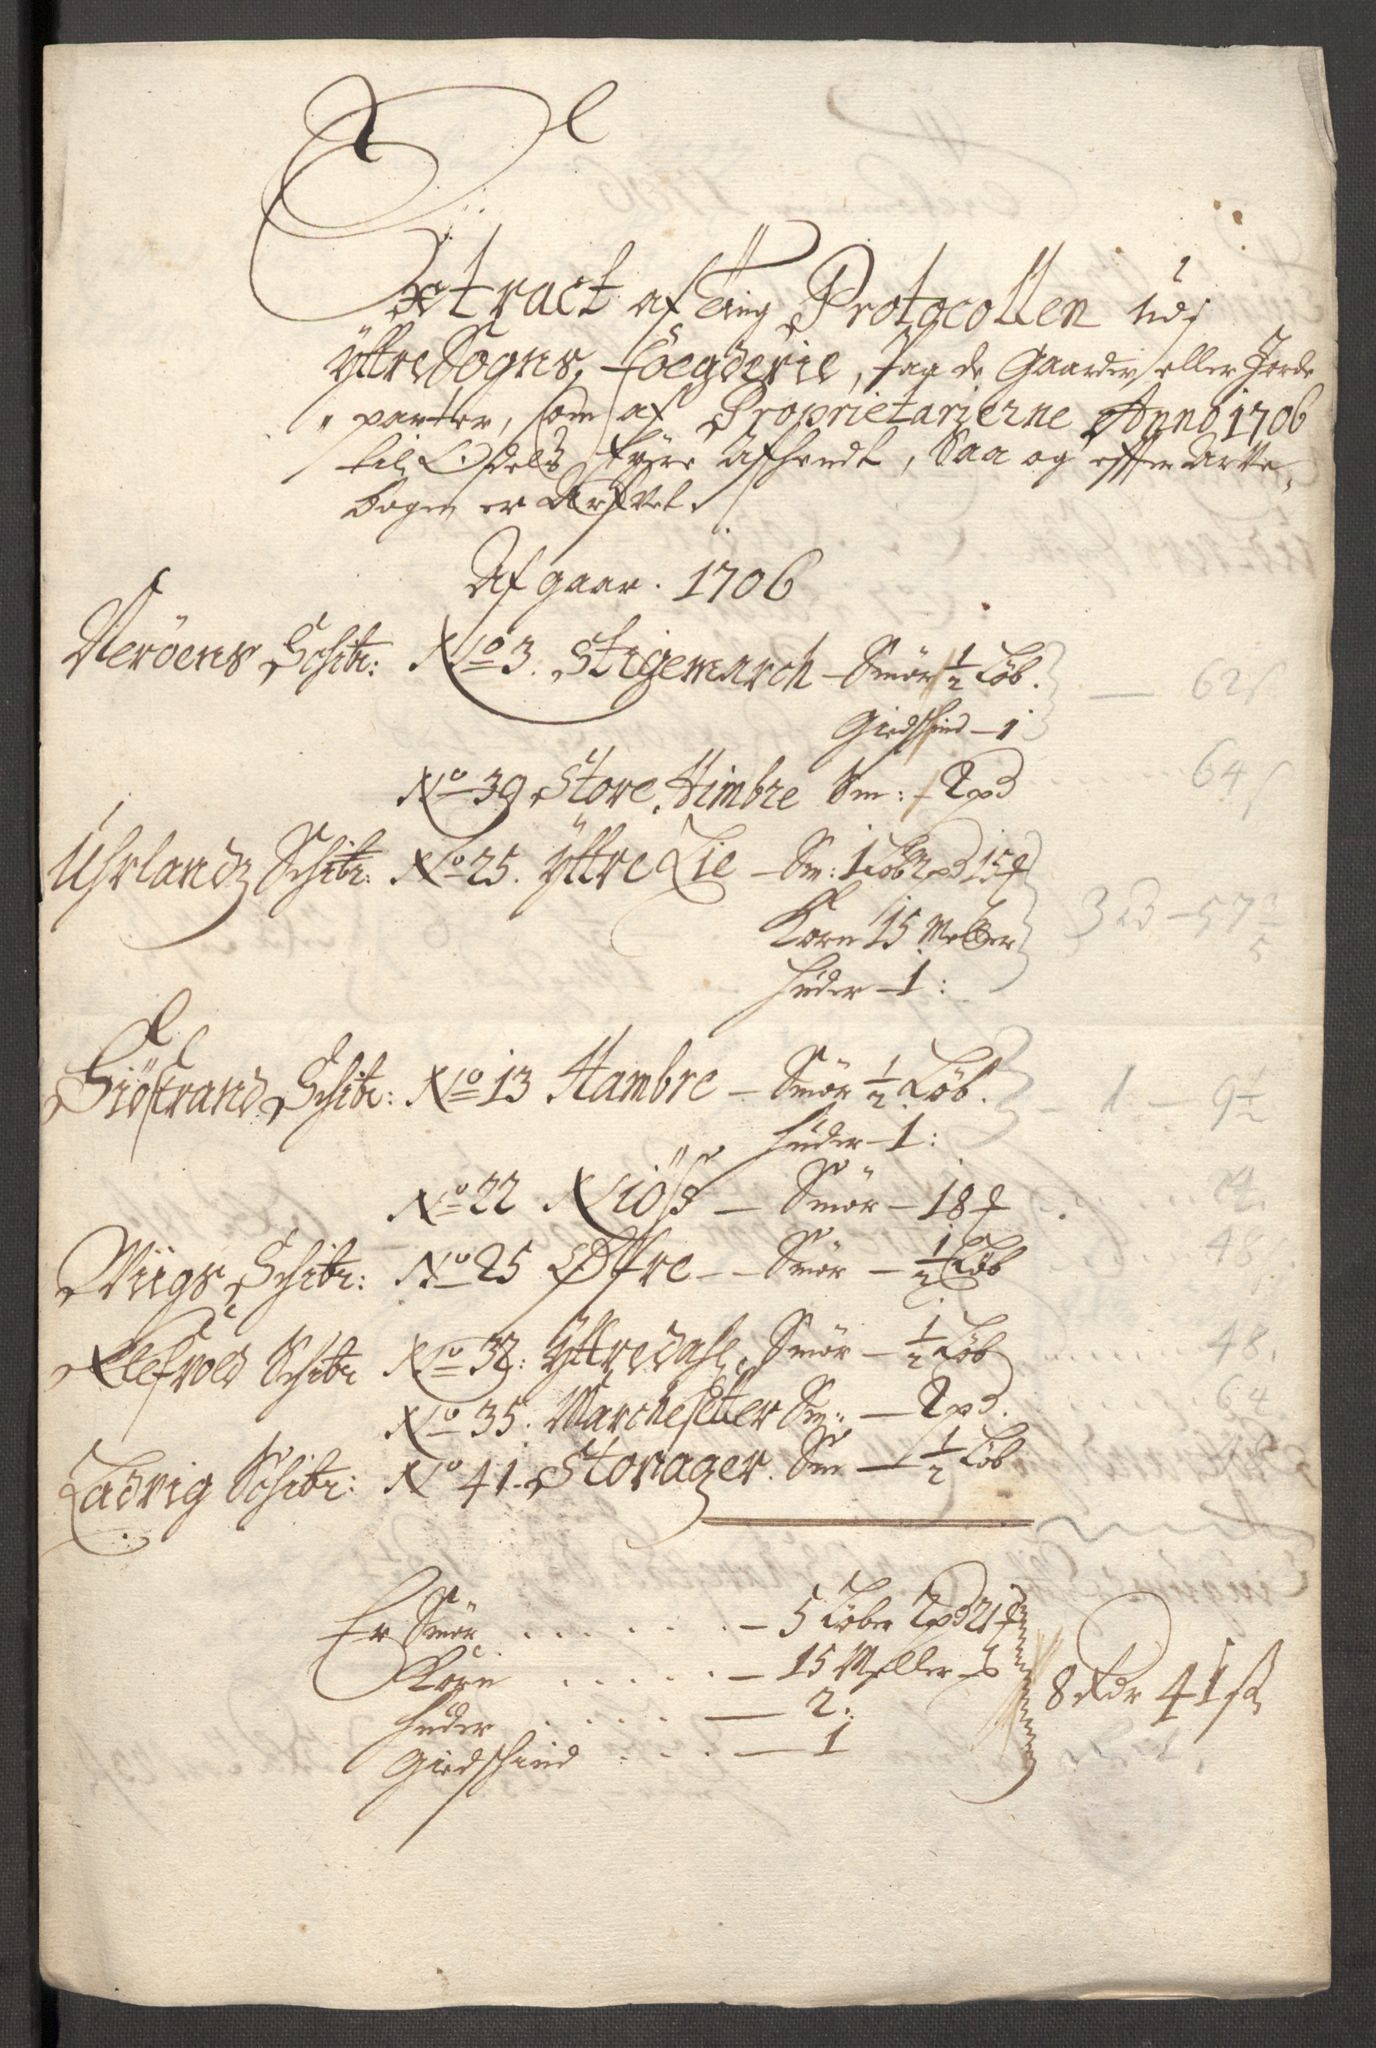 Extract af Ting Protocollen udj
Yttre Sogns Foegderie, Paa de Gaarder eller Jorde
parter, som af Proprietarierne Anno 1706
til Odels Eyere Afhendt, Saa og efter Arfve
bogen er Arfvet.
Af gaar. 1706
Nerøens Schibr: No 3. Stigemarch - Smør 1/2 Løb. — 62 s
Giedschind - 1
No 39 Store Himbre Sm: - 2 pd 64 s
Uhrlandz Schibr: No 25. Yttre Lie - Sm: 1 Løb 2 pd 15 #
Korn 15 Meller 3 rd - 57 3/5
Huder - 1:
Siøstrand Schibr: No 13 Hambre - Smør 1/2 Løb. - 1 - 9 1/2
Huder - 1:
No 22 Niøss - Smør - 18 #
Wiigs Schibr: No 25 Øfre - - Smør - 1/2 Løb 48
Klefvold Schibr No 32: Yttredahl. Smør - 1/2 Løb 48.
No 35. Marchesetter Sm: - 2 pd. 64
Ladvig Schibr: No 41. Storager. Sm - 1/2 Løb 48
Er Smør . . . . . . - 5 Løber 2 pd 21 #
Korn . . . . . - 15 Meller
Huder . . . . . - 2: 8 Rdr 41 s
Giedschind . . . . - 1